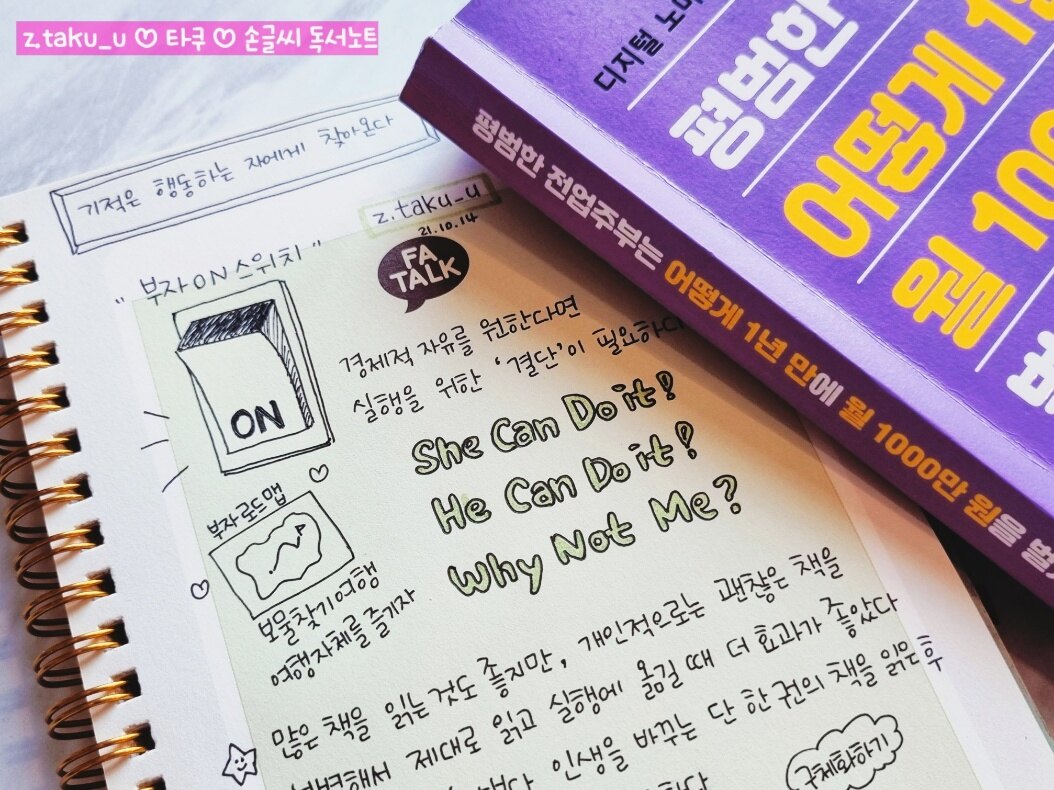 z.taku_u ♡ 타쿠 ♡ 손글씨 독서노트
기적은 행동하는 자에게 찾아온다
z.taku_u
21.10.14
"부자 ON 스위치"
FA
TALK
ON
경제적 자유를 원한다면
실행을 위한 '결단'이 필요하다
She Can Do it!
He Can Do it!
Why Not Me?
부자로드맵
보물찾기여행
여행자체를 즐기자
많은 책을 읽는것도 좋지만, 개인적으로는 괜찮은 책을
제대로 읽고 실행에 옮길 때 더 효과가 좋았다
인생을 바꾸는 단 한 권의 책을 읽은후
구체화하기
디지털
평범한
어떻게
월
평범한 전업주부는 어떻게 1년 만에 월 1000만 원을